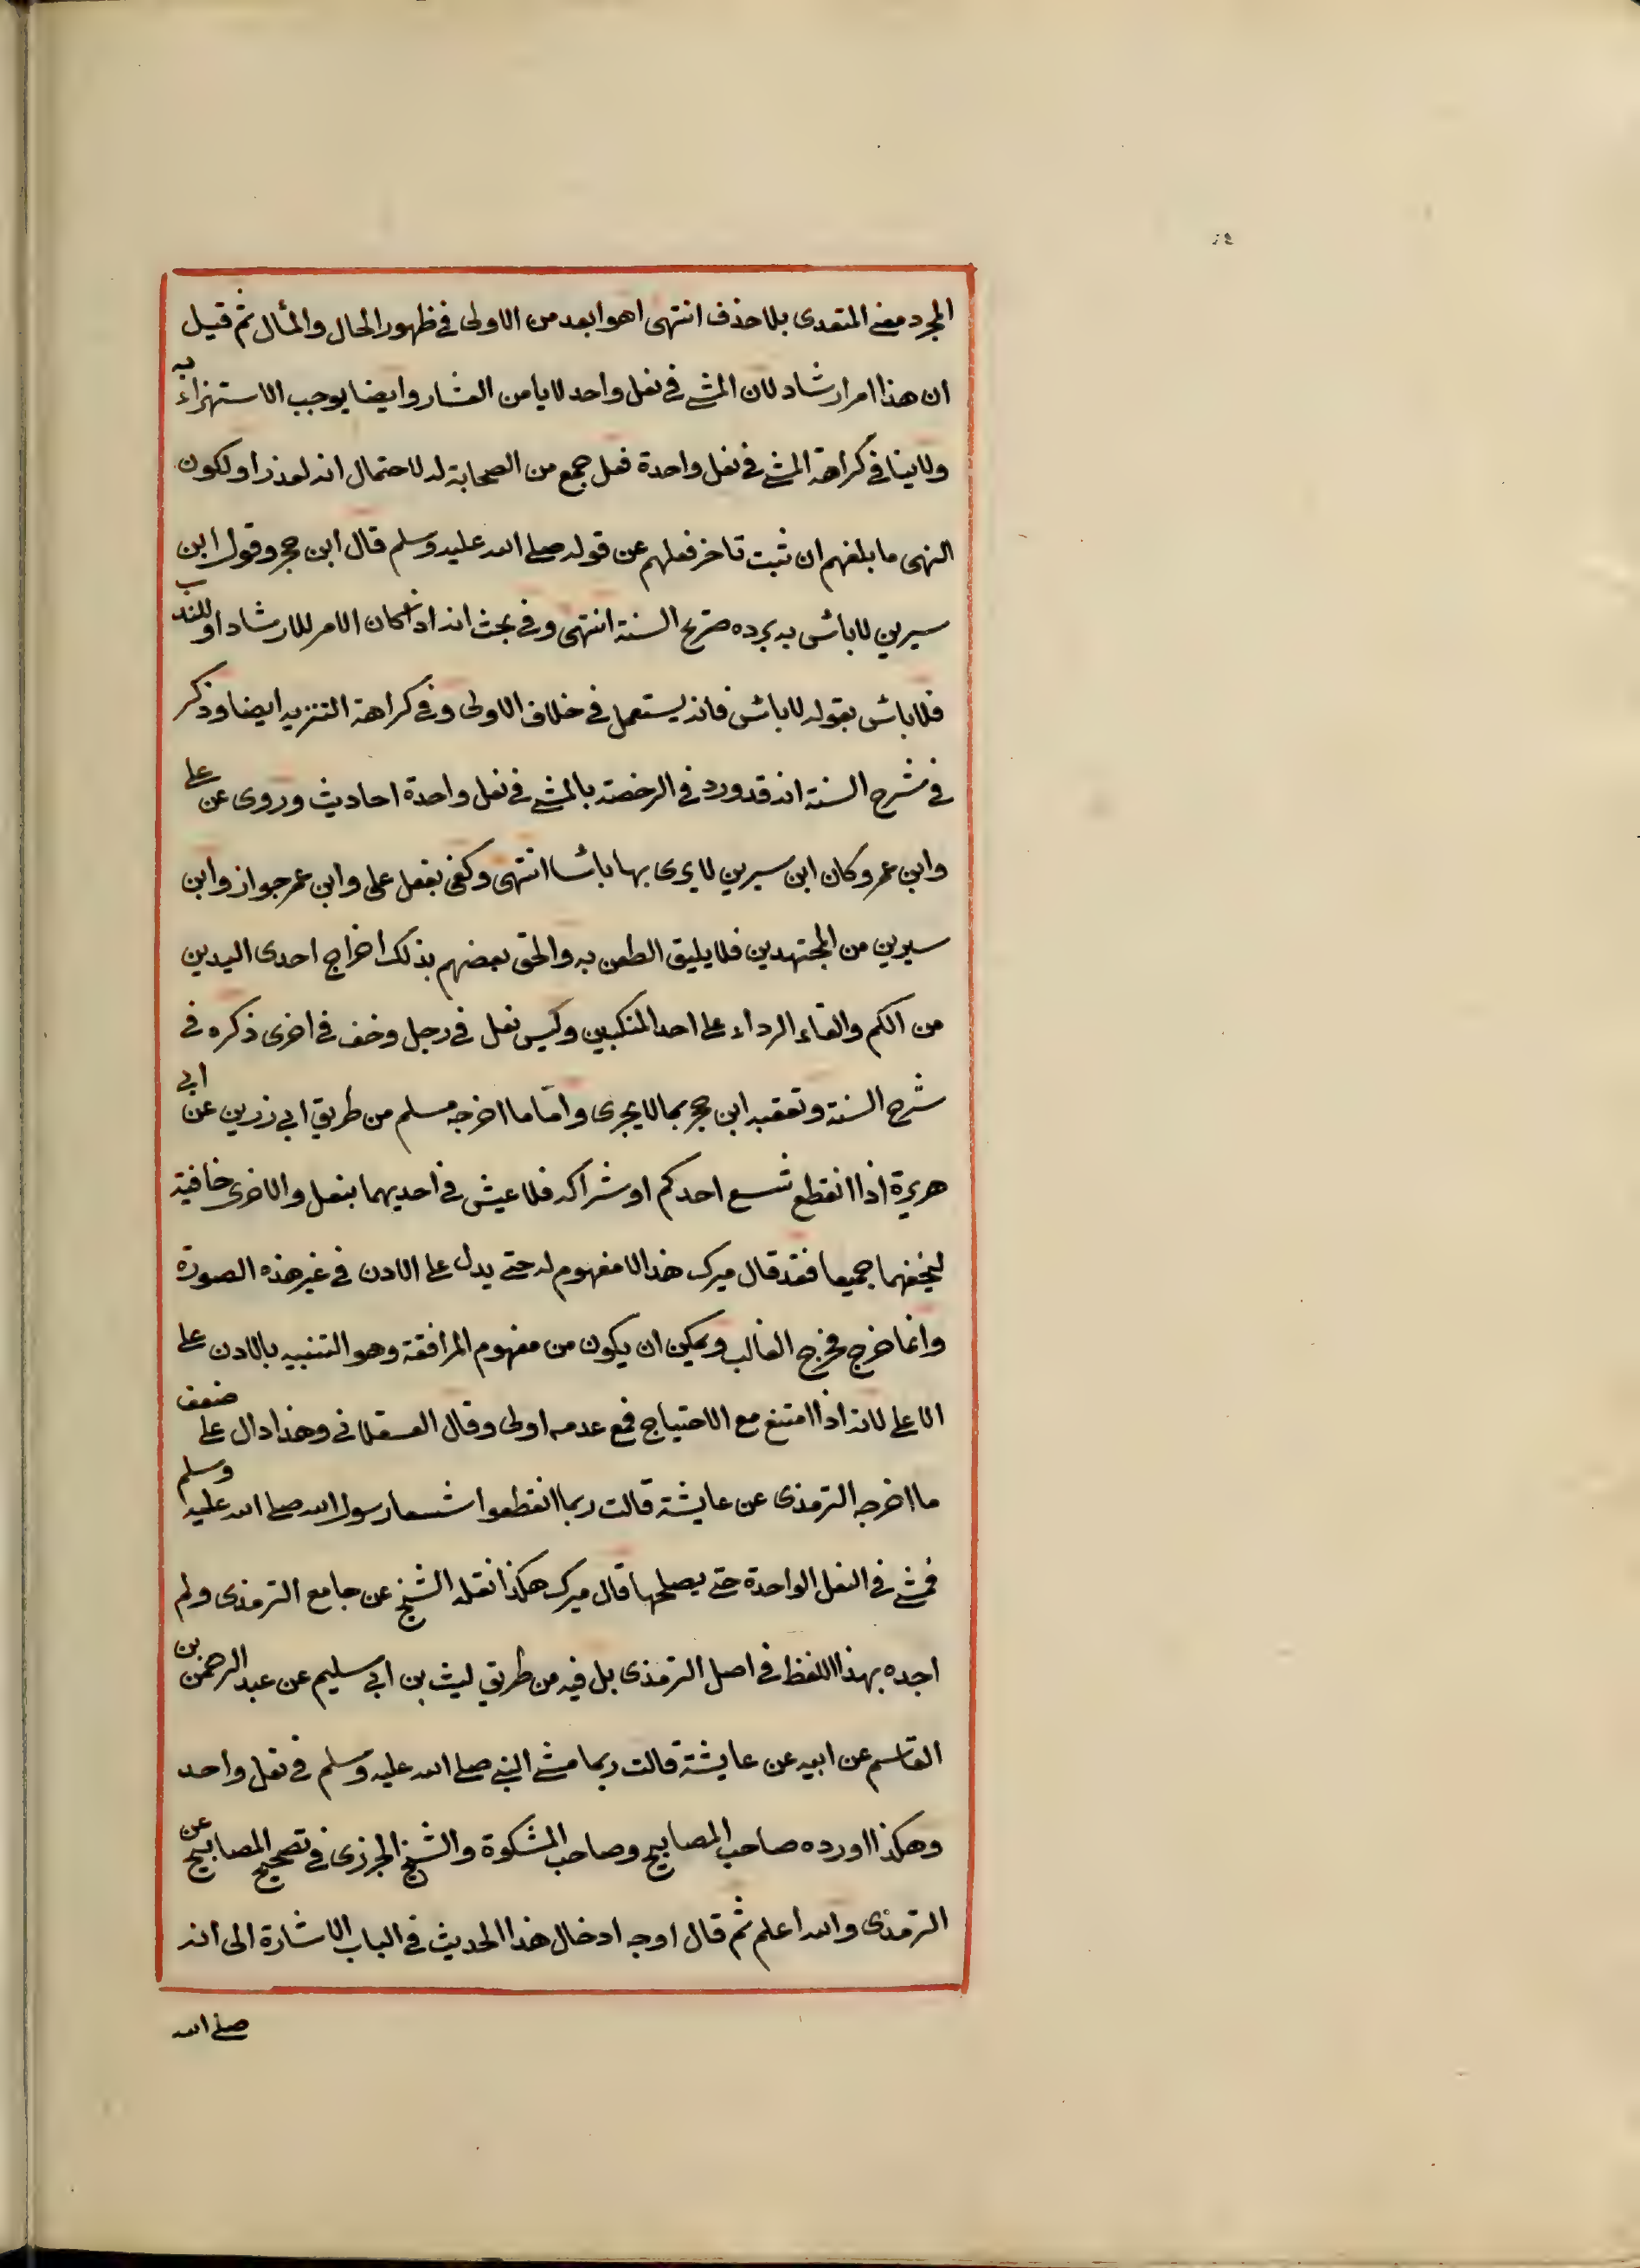 المجرد معنى المتعدى بلا حذف انتهى اهو ابعد من الاولى فى ظهور الحال والمأل ثم قيل
ان هذا امر ارشاد لان المشى فى نعل واحد لا يامن العشار وايضا يوجب الاستهزاء به
ولا ينافى كراهة المشى فى نعل واحدة فعل جمع من الصحابة له لاحتمال انه لعذر او لكون
النهى ما بلغهم ان ثبت تاخر فعلهم عن قوله صلى الله عليه وسلم قال ابن حجر وقول ابن
سيرين لا بائس به يرده صريح السنة انتهى وفى بحث انه اذا كان الامر للارشاد او للندب
فلا بائس بقوله لا بائس فانه يستعمل فى خلاف الاولى وفى كراهة التنزيه ايضا وذكر
فى شرح السنة انه قد ورد فى الرخصة بالمشى فى نعل واحدة احاديث وروى عن على
وابن عمر وكان ابن سيرين لا يرى بها بائسا انتهى وكفى بفعل على وابن عمر جواز وابن
سيرين من المجتهدين فلا يليق الطعن به والحق بعضهم بذلك اخراج احدى اليدين
من الكم والقاء الرداء على احد المنكبين وليس نعل فى رجل وخف فى اخرى ذكره فى
شرح السنة وتعقبه ابن حجر بما لا يجرى واما ما اخرجه مسلم من طريق ابى زرين عن ابى
هريرة اذا انقطع شسع احدكم او شراكه فلا عيش فى احديهما بنعل والاخرى خافية
ليخفهما جميعا فقد قال ميرك هذا لا مفهوم له حتى يدل على الادن فى غير هذه الصورة
وانما خرج مخرج الغالب ويمكن ان يكون من مفهوم المرافقة وهو التنبيه بالادن على
الاعلى لانه اذا امتنع مع الاحتياج فمع عدمه اولى وقال العسقلانى وهذا دال على ضعف
ما اخرجه الترمذى عن عايشة قالت ربما انقطعوا شسعا رسول الله صلى الله عليه وسلم
فمشى فى النعل الواحدة حتى يصلحها قال ميرك هكذا نقله الشيخ عن جامع الترمذى ولم
اجده بهذا اللفظ فى اصل الترمذى بل فيه من طريق ليث بن ابى سليم عن عبد الرحمن بن
القاسم عن ابيه عن عايشة قالت ربما مشى النبى صلى الله عليه وسلم فى نعل واحد
وهكذا اورده صاحب المصابيح وصاحب المشكوة والشيخ الجزرى فى تصحيح المصابيح عن
الترمذى والله اعلم ثم قال اوجه ادخال هذا الحديث فى الباب الاشارة الى انه
صلى الله